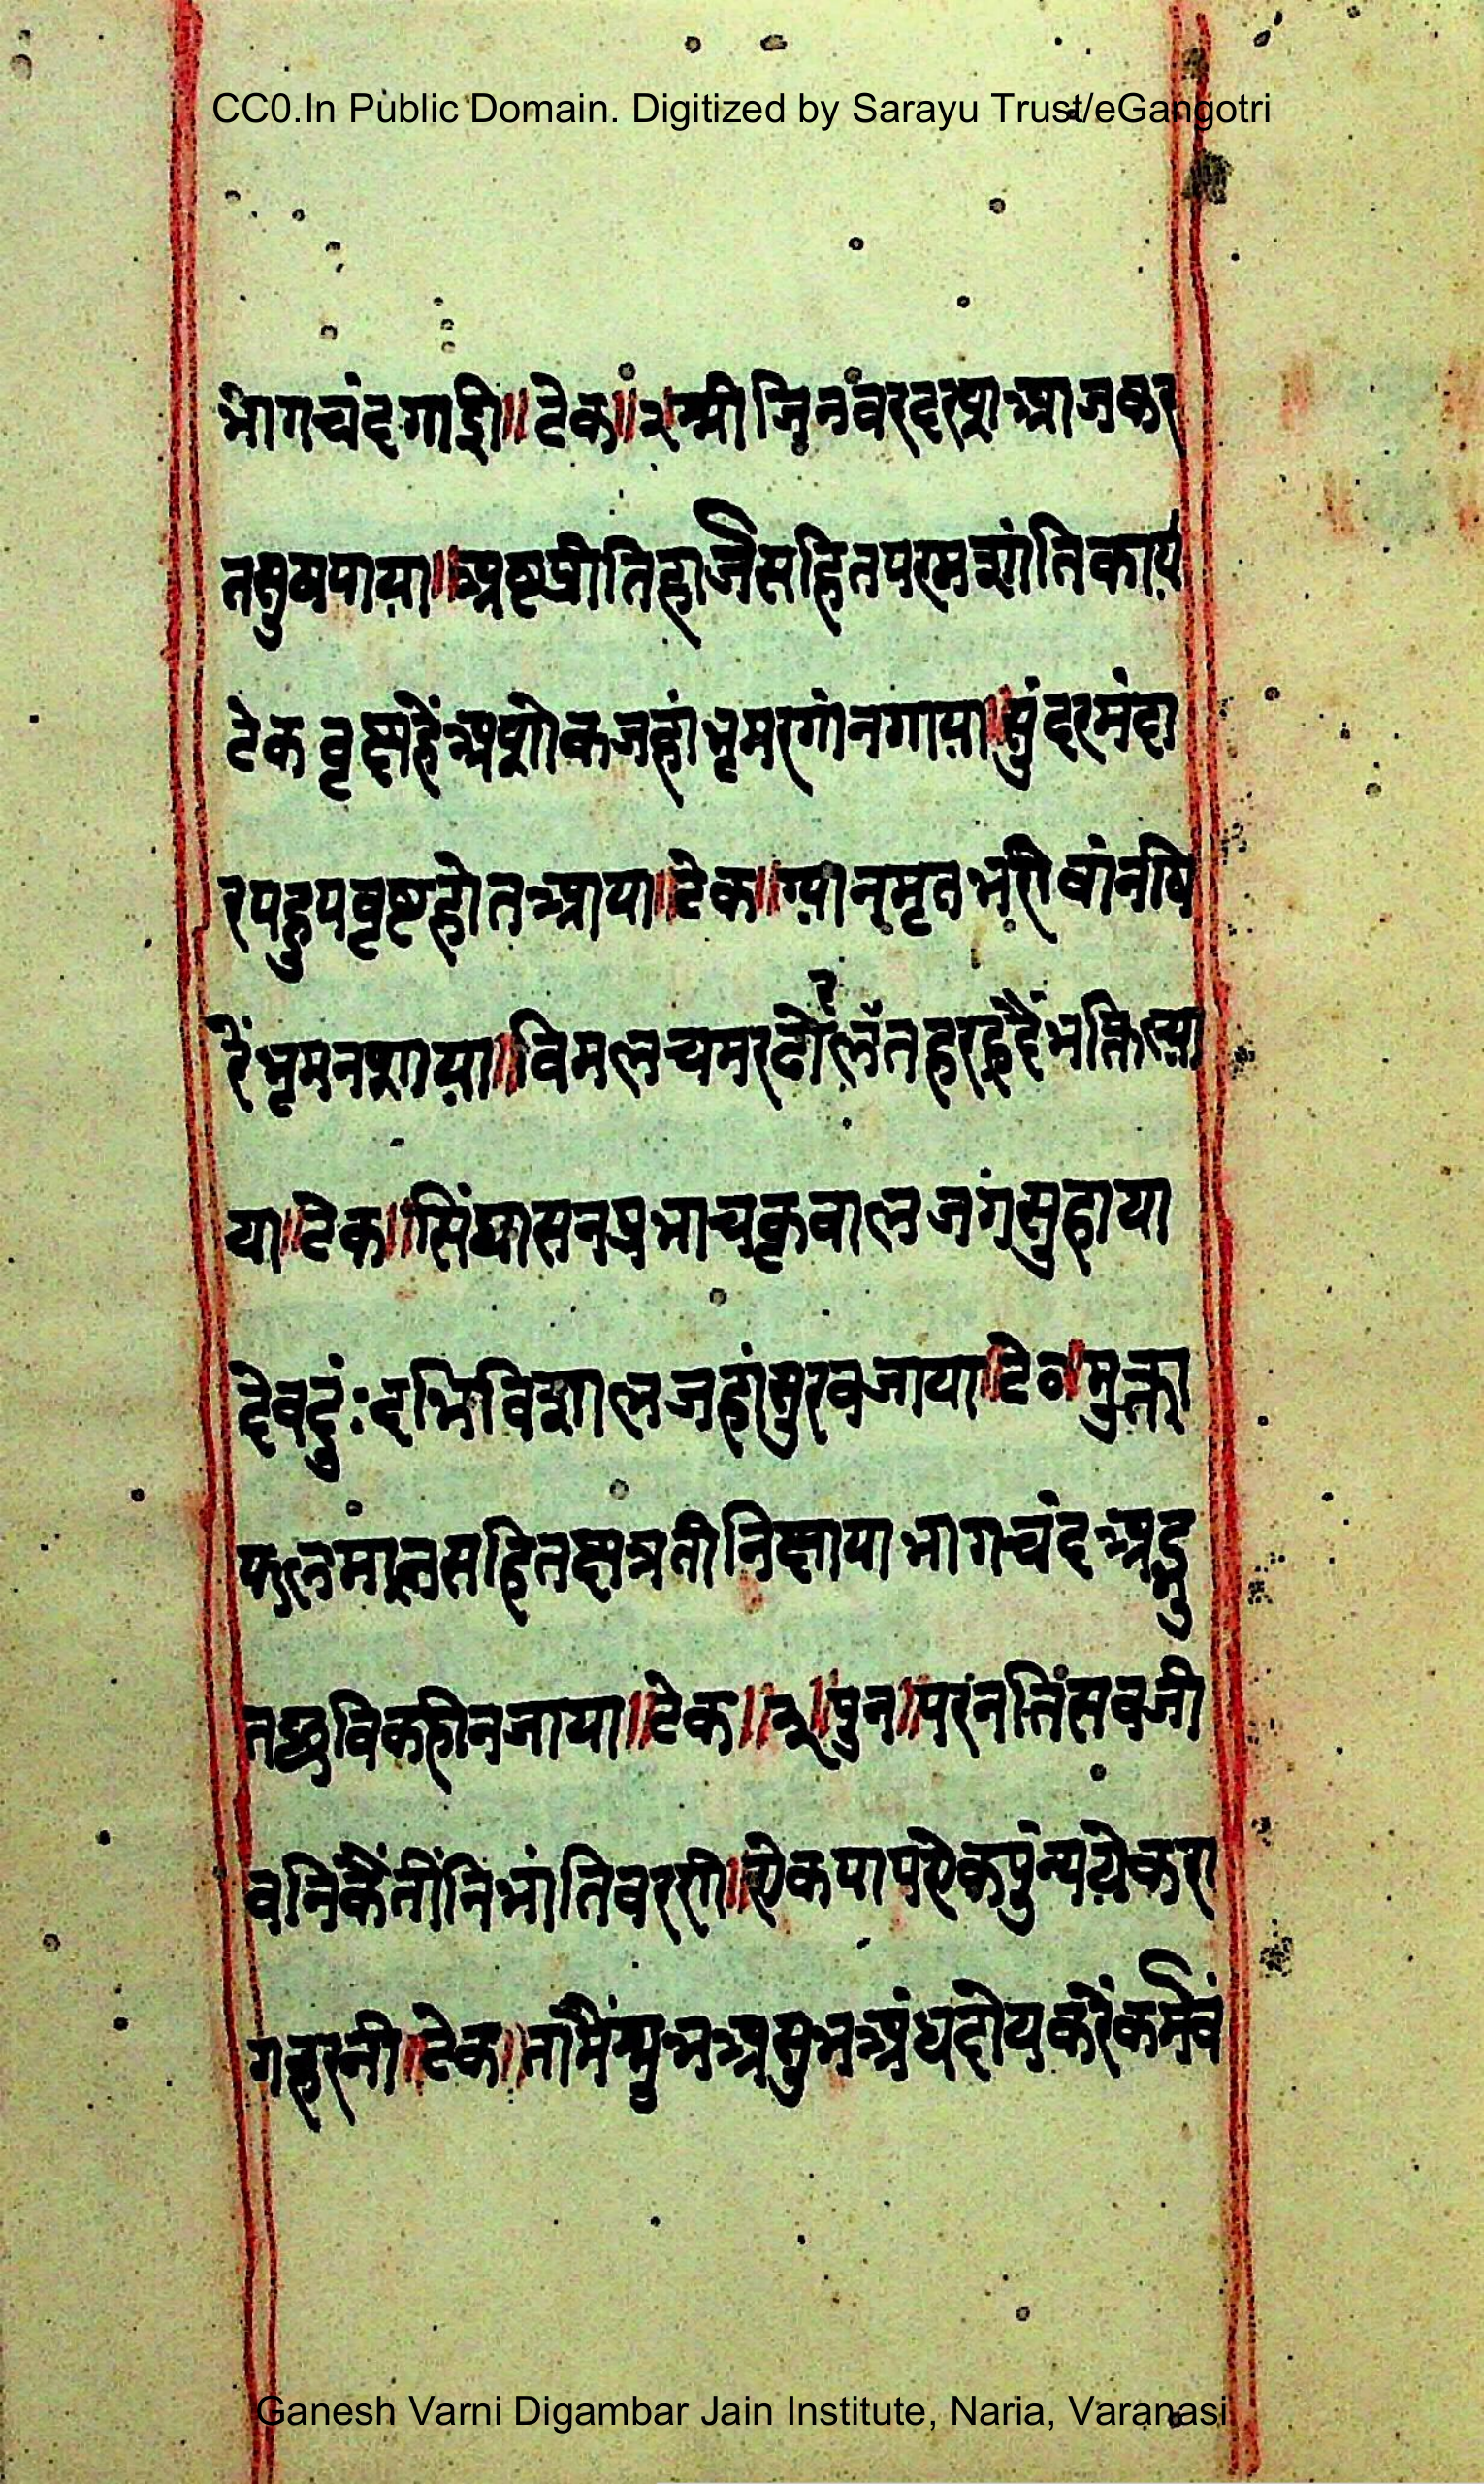 CC0.In Public Domain. Digitized by Sarayu Trust/eGangotri
भागचंद गाई॥ टेक॥२ श्री जिनवर दरश आज कर
त सुष पाया॥ अष्ट प्रीतिहार्ज सहित परम शांति काय
टेक वृक्ष हैं अशोक जहां भृमर गांन गाया॥ सुंदर मंदा
र पहुप वृष्ट होत आया॥ टेक॥ ग्यानमृत भरी बांन षि
रैं भृम नशाया॥ विमल चमर ढोलत हर हृदैं भक्ति ल्या
या॥ टेक॥ सिंघासन प्रभा चकृवाल जग सुहाया
देव दुं:दभि विशाल जहां सुर वजाया॥ टे० मुक्ता
फल माल सहित क्षत्र तीनि क्षाया भागचंद अद्भु
त छवि कही न जाया॥ टेक॥ २ पुन॥ परंनति सव जी
वनि कैं तींनि भांति वरनी॥ येक पाप येक पुंन्य येक रा
ग हरनी॥ टेक॥ तामैं शुभ असुभ अंध दोय करैं कर्म वं
Ganesh Varni Digambar Jain Institute, Naria, Varanasi